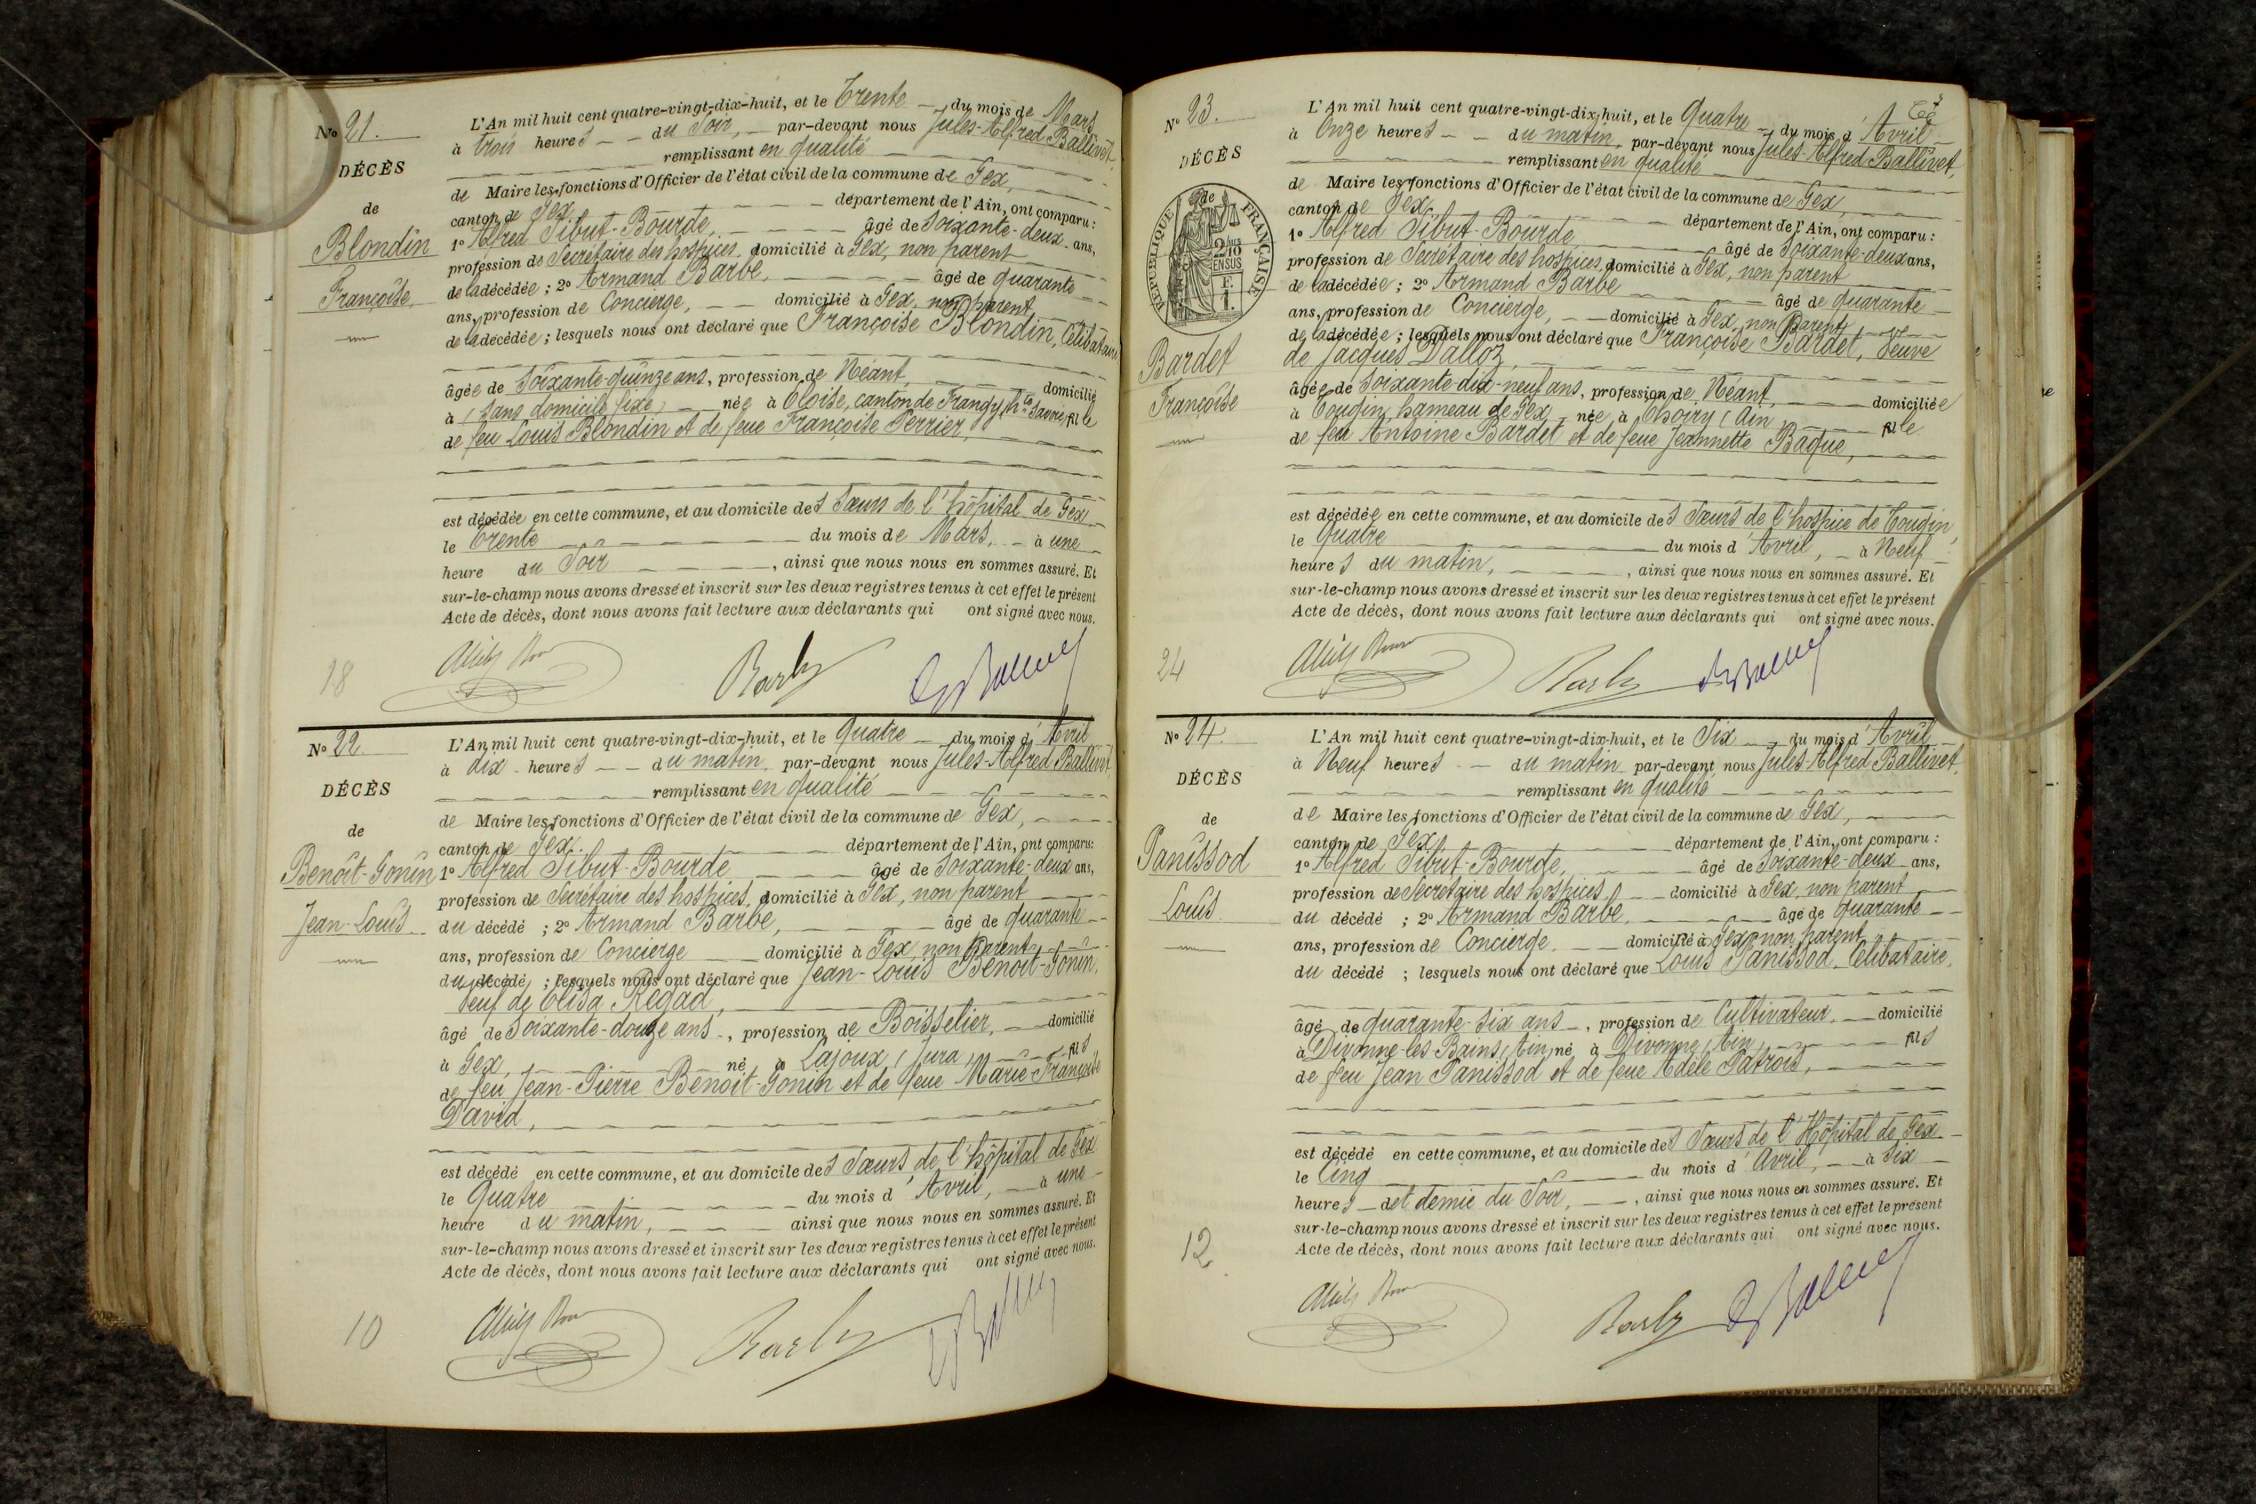 Nº 21.
DÉCÈS
de
Blondin
Françoise
L'An mil huit cent quatre-vingt-dix-huit, et le Trente du mois de Mars
à trois heures du Soir, par-devant nous Jules-Alfred Ballivet,
remplissant en qualité
de Maire les fonctions d'Officier de l'état civil de la commune de Gex,
canton de Gex département de l'Ain, ont comparu :
1º Alfred Sibut-Bourde, âgé de Soixante-deux ans,
profession de Secrétaire des hospices, domicilié à Gex, non parent
de la décédée ; 2º Armand Barbe, âgé de quarante
ans, profession de Concierge, domicilié à Gex, non parent
de la décédée ; lesquels nous ont déclaré que Françoise Blondin, Célibataire
âgée de Soixante-quinze ans, profession de Néant, domicilié
à (sans domicile fixe) née à Cloise, canton de Frangy, hte Savoie, fille
de feu Louis Blondin et de feue Françoise Perrier,
est décédée en cette commune, et au domicile des Sœurs de l'hôpital de Gex
le Trente du mois de Mars, à une
heure du Soir , ainsi que nous nous en sommes assuré. Et
sur-le-champ nous avons dressé et inscrit sur les deux registres tenus à cet effet le présent
Acte de décès, dont nous avons fait lecture aux déclarants qui ont signé avec nous.
Barbe
18
Nº 22.
DÉCÈS
de
Benoît-Gonin
Jean-Louis
L'An mil huit cent quatre-vingt-dix-huit, et le Quatre du mois d'Avril
à dix heures du matin par-devant nous Jules-Alfred Ballivet
remplissant en qualité
de Maire les fonctions d'Officier de l'état civil de la commune de Gex,
canton de Gex. département de l'Ain, ont comparu :
1º Alfred Sibut-Bourde âgé de Soixante-deux ans,
profession de Secrétaire des hospices, domicilié à Gex, non parent
du décédé ; 2º Armand Barbe, âgé de quarante
ans, profession de Concierge domicilié à Gex, non parent
du décédé ; lesquels nous ont déclaré que Jean-Louis Benoit-Gonin,
Veuf de Elisa Régad,
âgé de Soixante-douze ans, profession de Boisselier, domicilié
à Gex, né à Lajoux, (Jura), fils
de feu Jean-Pierre Benoit-Gonin et de feue Marie-Françoise
David,
est décédé en cette commune, et au domicile des Sœurs de l'hôpital de Gex
le Quatre du mois d'Avril, à une
heure du matin, ainsi que nous nous en sommes assuré. Et
sur-le-champ nous avons dressé et inscrit sur les deux registres tenus à cet effet le présent
Acte de décès, dont nous avons fait lecture aux déclarants qui ont signé avec nous.
Barbe
10
Nº 23.
DÉCÈS
de
RÉPUBLIQUE FRANÇAISE
Bardet
Françoise
L'An mil huit cent quatre-vingt-dix-huit, et le Quatre du mois d'Avril
à Onze heures du matin, par-devant nous Jules-Alfred Ballivet,
remplissant en qualité
de Maire les fonctions d'Officier de l'état civil de la commune de Gex,
canton de Gex, département de l'Ain, ont comparu :
1º Alfred Sibut-Bourde, âgé de Soixante-deux ans,
profession de Secrétaire des hospices, domicilié à Gex, non parent
de la décédée ; 2º Armand Barbe âgé de quarante
ans, profession de Concierge, domicilié à Gex, non parent
de la décédée ; lesquels nous ont déclaré que Françoise Bardet, Veuve
de Jacques Dalloz,
âgée de Soixante-dix-neuf ans, profession de Néant, domiciliée
à Tougin, hameau de Gex, née à Thoiry (Ain) fille
de feu Antoine Bardet et de feue Jeannette Baque,
est décédée en cette commune, et au domicile des Sœurs de l'hospice de Tougin,
le Quatre du mois d'Avril, à Neuf
heures du matin, , ainsi que nous nous en sommes assuré. Et
sur-le-champ nous avons dressé et inscrit sur les deux registres tenus à cet effet le présent
Acte de décès, dont nous avons fait lecture aux déclarants qui ont signé avec nous.
Barbe
24
Nº 24.
DÉCÈS
de
Panissod
Louis
L'An mil huit cent quatre-vingt-dix-huit, et le Six du mois d'Avril
à Neuf heures du matin par-devant nous Jules-Alfred Ballivet,
remplissant en qualité
de Maire les fonctions d'Officier de l'état civil de la commune de Gex,
canton de Gex département de l'Ain, ont comparu :
1º Alfred Sibut-Bourde, âgé de Soixante-deux ans,
profession de Secrétaire des hospices, domicilié à Gex, non parent
du décédé ; 2º Armand Barbe, âgé de quarante
ans, profession de Concierge, domicilié à Gex, non parent
du décédé ; lesquels nous ont déclaré que Louis Panissod, Célibataire,
âgé de quarante-six ans, profession de Cultivateur, domicilié
à Divonne-les-Bains, Ain, né à Divonne, Ain, fils
de feu Jean Panissod et de feue Adèle Patrois,
est décédé en cette commune, et au domicile des Sœurs de l'Hôpital de Gex
le Cinq du mois d'Avril, à Six
heures et demie du Soir, , ainsi que nous nous en sommes assuré. Et
sur-le-champ nous avons dressé et inscrit sur les deux registres tenus à cet effet le présent
Acte de décès, dont nous avons fait lecture aux déclarants qui ont signé avec nous.
Barbe
12